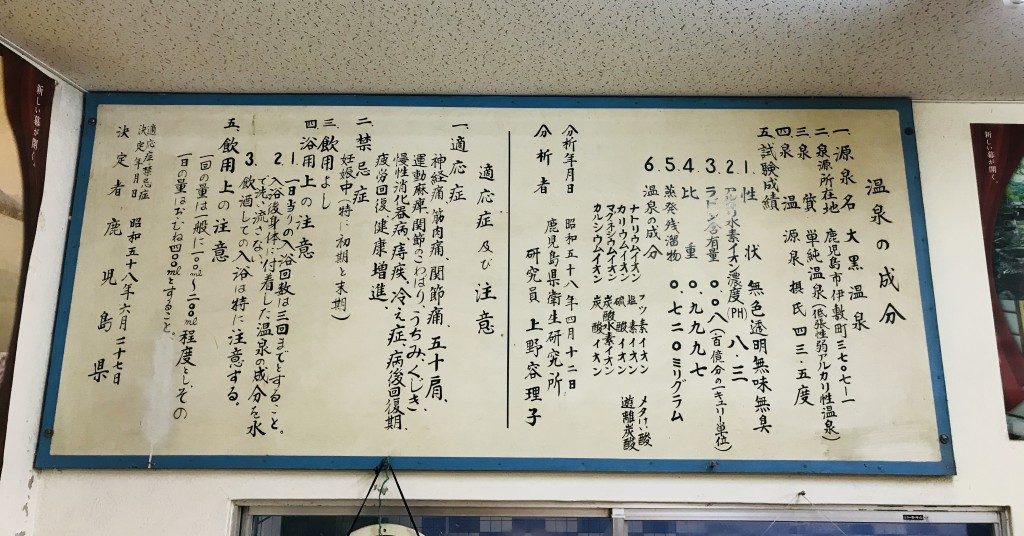 温泉の成分
一、源泉名 大黒温泉
二、泉源所在地 鹿児島市伊敷町三七〇七ー一
三、泉質 単純温泉(低張性弱アルカリ性温泉)
四、泉温 源泉摂氏四三・五度
五、試験成績
1. 性状 無色透明無味無臭
2. アルカリ水素イオン濃度(PH) 八・三
3. ラドン含有量 〇・〇八(百億分の一キュリー単位)
4. 比重 〇・九九九七
5. 蒸発残溜物 〇・七二〇ミリグラム
6. 温泉の成分
ナトリウムイオン フッ素イオン メタけい酸
カリウムイオン 塩素イオン 遊離炭酸
マグネシウムイオン 硫酸イオン
カルシウムイオン 炭酸水素イオン
炭酸イオン
分析年月日 昭和五十八年四月十二日
鹿児島県衛生研究所
分析者 研究員 上野容理子
適応症及び注意
一、適応症
神経痛、筋肉痛、関節痛、五十肩、
運動麻痺、関節のこわばり、うちみ、くじき、
慢性消化器病、痔疾、冷え症、病後回復期、
疲労回復、健康増進、
二、禁忌症
妊娠中(特に初期と末期)
三、飲用よし
四、浴用上の注意
1. 1日当りの入浴回数は三回までとすること。
2. 入浴後身体に付着した温泉の成分を水
で洗い流さない。
3. 飲酒しての入浴は特に注意する。
五、飲用上の注意
一回の量は一般に一〇〇ml〜二〇〇ml程度とし、その
一日の量はおおむね四〇〇mlとすること。
適応症禁忌症
決定年月日 昭和五十八年六月二十七日
決定者 鹿児島県
新しい幕が開く。
新しい幕が開く。